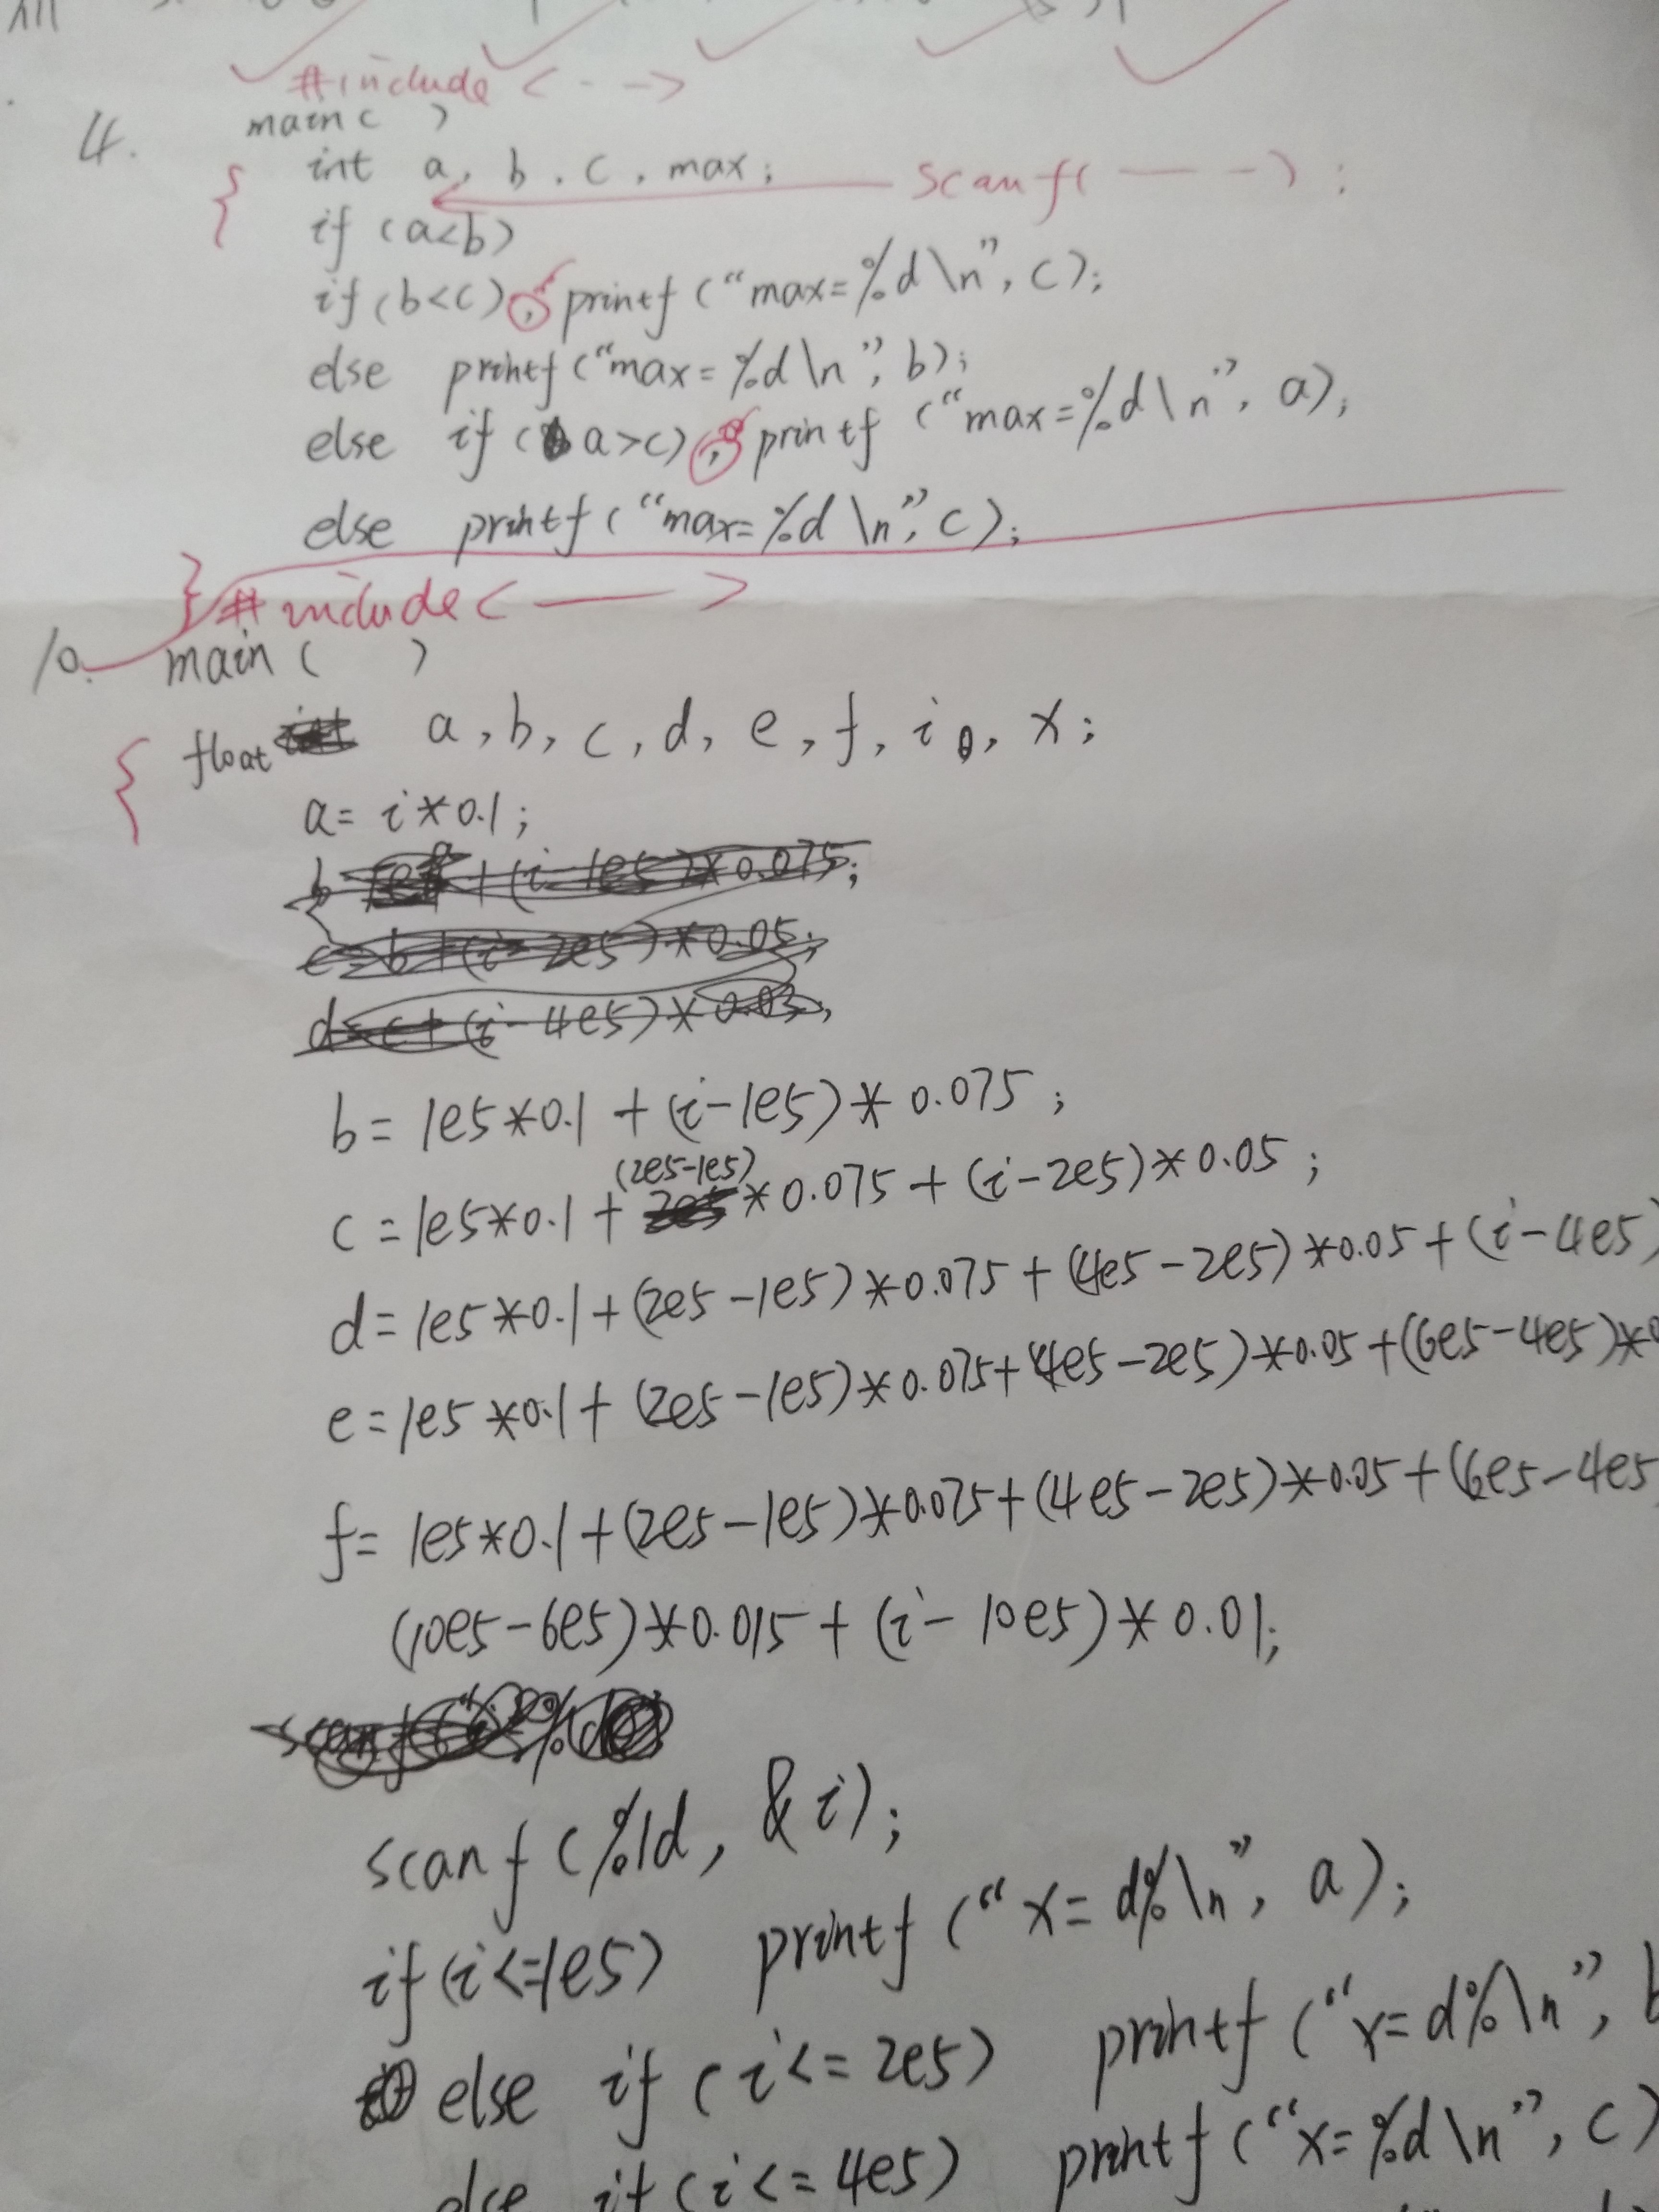 #include < - - >
4. main( )
{ int a, b, c, max; scanf( — - ) ;
if (a<b)
if (b<c) , printf ("max=%d\n", c);
else printf ("max=%d\n", b);
else if (a>c) , printf ("max=%d\n", a);
else printf ("max=%d\n", c);
} #include < — >
10. main ( )
{ float a, b, c, d, e, f, i, x;
a= i*0.1;
b + (i-1e5)*0.075;
c=b+(i-2e5)*0.05;
d=c+(i-4e5)*0.03;
b= 1e5*0.1 + (i-1e5)* 0.075 ;
(2e5-1e5)
c =1e5*0.1 + 2e5 *0.075 + (i-2e5)*0.05 ;
d= 1e5*0.1+(2e5-1e5)*0.075+(4e5-2e5)*0.05+(i-4e5)
e=1e5*0.1+(2e5-1e5)*0.075+4e5-2e5)*0.05+(6e5-4e5)*0
f= 1e5*0.1+(2e5-1e5)*0.075+(4e5-2e5)*0.05+(6e5-4e5)
(10e5-6e5)*0.015+(i-10e5)*0.01;
scanf (%ld, &i);
if(i<=1e5) printf ("x= d%\n", a);
else if (i<= 2e5) printf ("x= d%\n", b
else if (i<= 4e5) printf ("x=%d\n", c)